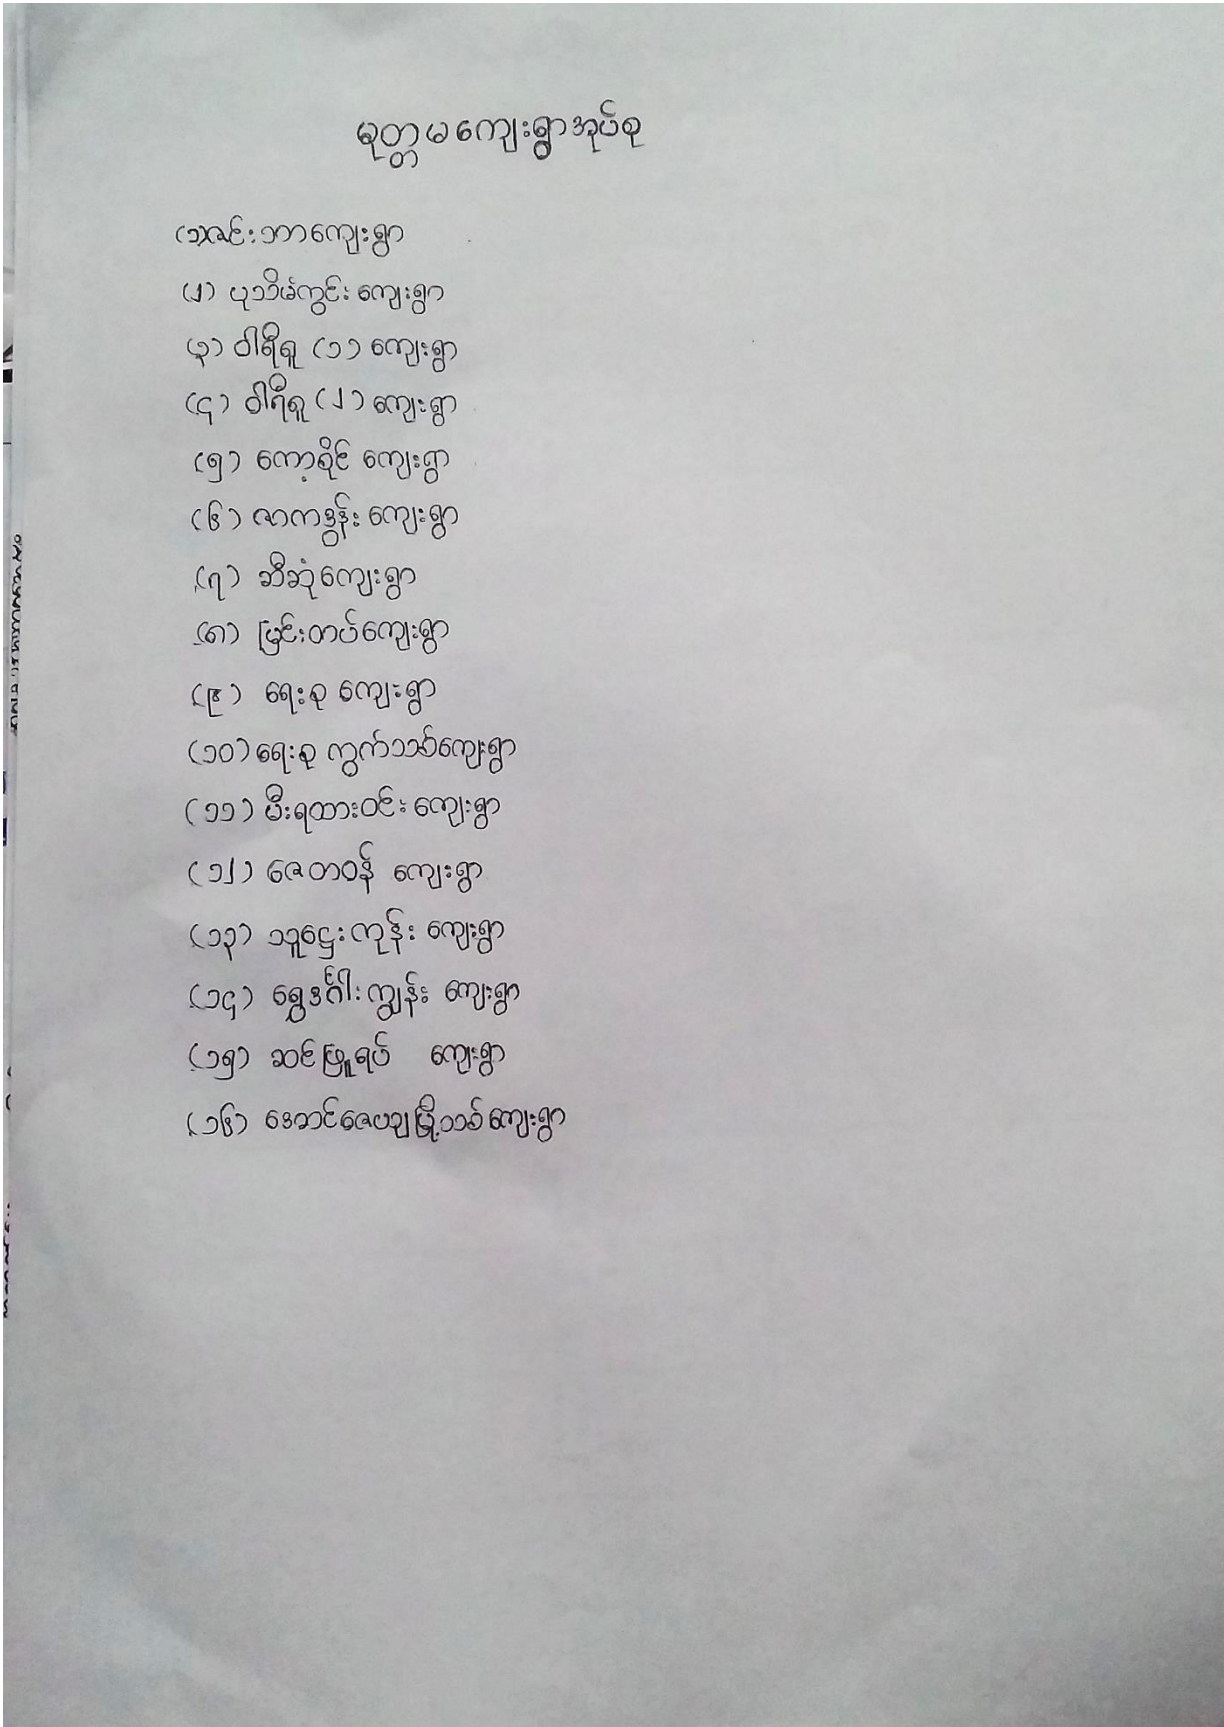 မုတ္တမကျေးရွာအုပ်စု
(၁)ဇင်းဘာကျေးရွာ
(၂) ပုသိမ်ကွင်းကျေးရွာ
(၃) ဝါရီရူ (၁) ကျေးရွာ
(၄) ဝါရီရူ (၂) ကျေးရွာ
(၅) ကော့စိုင် ကျေးရွာ
(၆) ဇာကဒွန်းကျေးရွာ
(၇) ဆီဆုံကျေးရွာ
(၈) မြင်းတပ်ကျေးရွာ
(၉) ရေးစု ကျေးရွာ
(၁၀) ရေးစု ကွက်သစ်ကျေးရွာ
(၁၁) မီးရထားဝင်းကျေးရွာ
(၁၂) ဇေတဝန် ကျေးရွာ
(၁၃) သူဌေးကုန်း ကျေးရွာ
(၁၄) ရွှေဒင်္ဂါးကျွန်း ကျေးရွာ
(၁၅) ဆင်ဖြူရပ် ကျေးရွာ
(၁၆) အောင်ဇေယျမြို့သစ်ကျေးရွာ